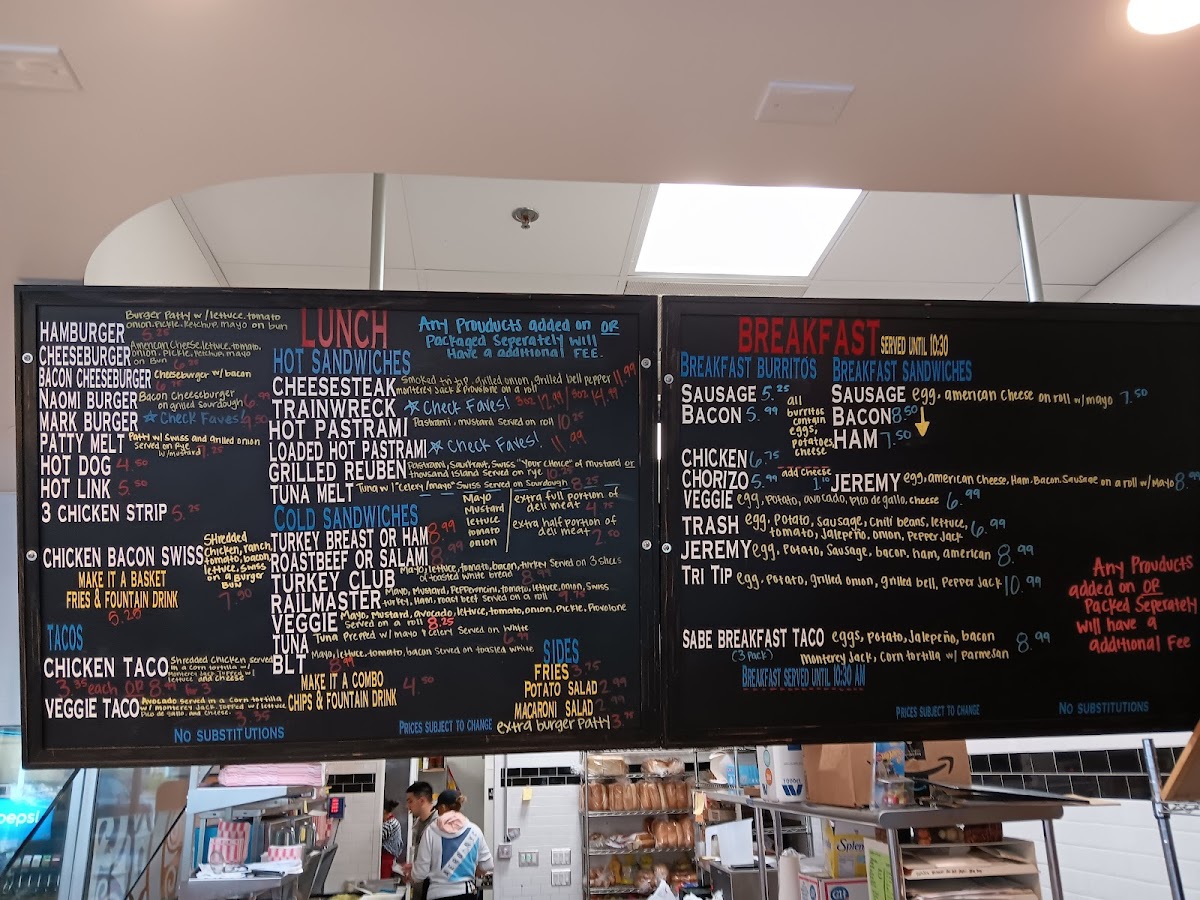 HAMBURGER Burger Patty w/ lettuce, tomato
onion, Pickle, Ketchup, mayo on bun
5.25
CHEESEBURGER American Cheese, lettuce, tomato,
onion, Pickle, Ketchup, mayo
on Bun 6.25
BACON CHEESEBURGER Cheeseburger w/ bacon
6.75
NAOMI BURGER Bacon Cheeseburger
on grilled Sourdough 6.99
MARK BURGER ☆ Check Faves! 9.50
PATTY MELT Patty w/ Swiss and Grilled onion
Served on Rye
w/mustard 7.25
HOT DOG 4.50
HOT LINK 5.50
3 CHICKEN STRIP 5.25
CHICKEN BACON SWISS Shredded
Chicken, ranch,
tomato, bacon,
lettuce, Swiss
on a Burger
Bun
7.50
MAKE IT A BASKET
FRIES & FOUNTAIN DRINK
5.25
TACOS
CHICKEN TACO Shredded Chicken served
in a Corn tortilla w/
Monterey Jack. Topped w/
lettuce and Cheese
3.35 each OR 8.99 for 3
VEGGIE TACO Avocado served in a Corn tortilla
w/ monterey Jack. Topped w/ lettuce
Pico de Gallo, and Cheese. 3.35
NO SUBSTITUTIONS
LUNCH
Any Prouducts added on OR
Packaged Seperately will
Have a additional FEE.
HOT SANDWICHES
CHEESESTEAK Smoked tri tip, grilled onion, grilled bell pepper 11.99
monterey Jack & Provolone on a roll
TRAINWRECK ☆ Check Faves! 8oz 12.99/ 10oz 14.99
HOT PASTRAMI Pastrami, mustard Served on roll 10.25
LOADED HOT PASTRAMI ☆ Check Faves! 11.99
GRILLED REUBEN Pastrami, Saurkraut, Swiss "Your Choice" of mustard or
thousand Island Served on rye 10.25
TUNA MELT Tuna w/ "Celery/mayo" Swiss Served on Sourdough 8.25
COLD SANDWICHES
TURKEY BREAST OR HAM 8.99
ROASTBEEF OR SALAMI 8.99
Mayo
Mustard
lettuce
tomato
onion
extra full portion of
deli meat 4.75
extra half portion of
deli meat 2.50
TURKEY CLUB Mayo, lettuce, tomato, bacon, turkey Served on 3 slices
of toasted white bread 8.99
RAILMASTER Mayo, Mustard, Pepperoncini, tomato, lettuce, onion, Swiss
turkey, Ham, roast beef Served on a roll 9.75
VEGGIE Mayo, Mustard, Avocado, lettuce, tomato, onion, Pickle, Provolone
Served on a roll 8.25
TUNA Tuna Prepped w/ mayo & Celery Served on White
6.99
BLT Mayo, lettuce, tomato, bacon Served on toasted white
8.99
MAKE IT A COMBO
CHIPS & FOUNTAIN DRINK 4.50
SIDES
FRIES 3.75
POTATO SALAD 2.99
MACARONI SALAD 2.99
extra burger Patty 3.75
PRICES SUBJECT TO CHANGE
BREAKFAST SERVED UNTIL 10:30
BREAKFAST BURRITOS
SAUSAGE 5.25
BACON 5.99
all
burritos
contain
eggs,
potatoes,
cheese
CHICKEN 6.75
CHORIZO 5.99 add cheese
1.10
VEGGIE egg, potato, avocado, pico de gallo, cheese 6.99
TRASH egg, potato, Sausage, Chili beans, lettuce, 6.99
tomato, jalepeño, onion, pepper Jack
JEREMY egg, potato, Sausage, bacon, ham, american 8.99
TRI TIP egg, potato, grilled onion, grilled bell, Pepper Jack 10.99
SABE BREAKFAST TACO eggs, potato, Jalepeño, bacon 8.99
(3 Pack) Monterey Jack, Corn tortilla w/ Parmesan
BREAKFAST SERVED UNTIL 10:30 AM
BREAKFAST SANDWICHES
SAUSAGE egg, american Cheese on roll w/mayo 7.50
BACON 8.50
HAM 7.50
JEREMY egg, american Cheese, Ham, Bacon, Sausage on a roll w/Mayo 8.99
Any Prouducts
added on OR
Packed Seperately
will have a
additional Fee
PRICES SUBJECT TO CHANGE
NO SUBSTITUTIONS
pepsi
Splen